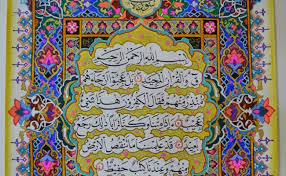 بسم الله الرحمن الرحيم
ق والقرآن المجيد بل عجبوا أن جاءهم
منذر منهم فقال الكافرون هذا شيء
عجيب أإذا متنا وكنا ترابا ذلك رجع
بعيد قد علمنا ما تنقص الأرض
منهم وعندنا كتاب حفيظ